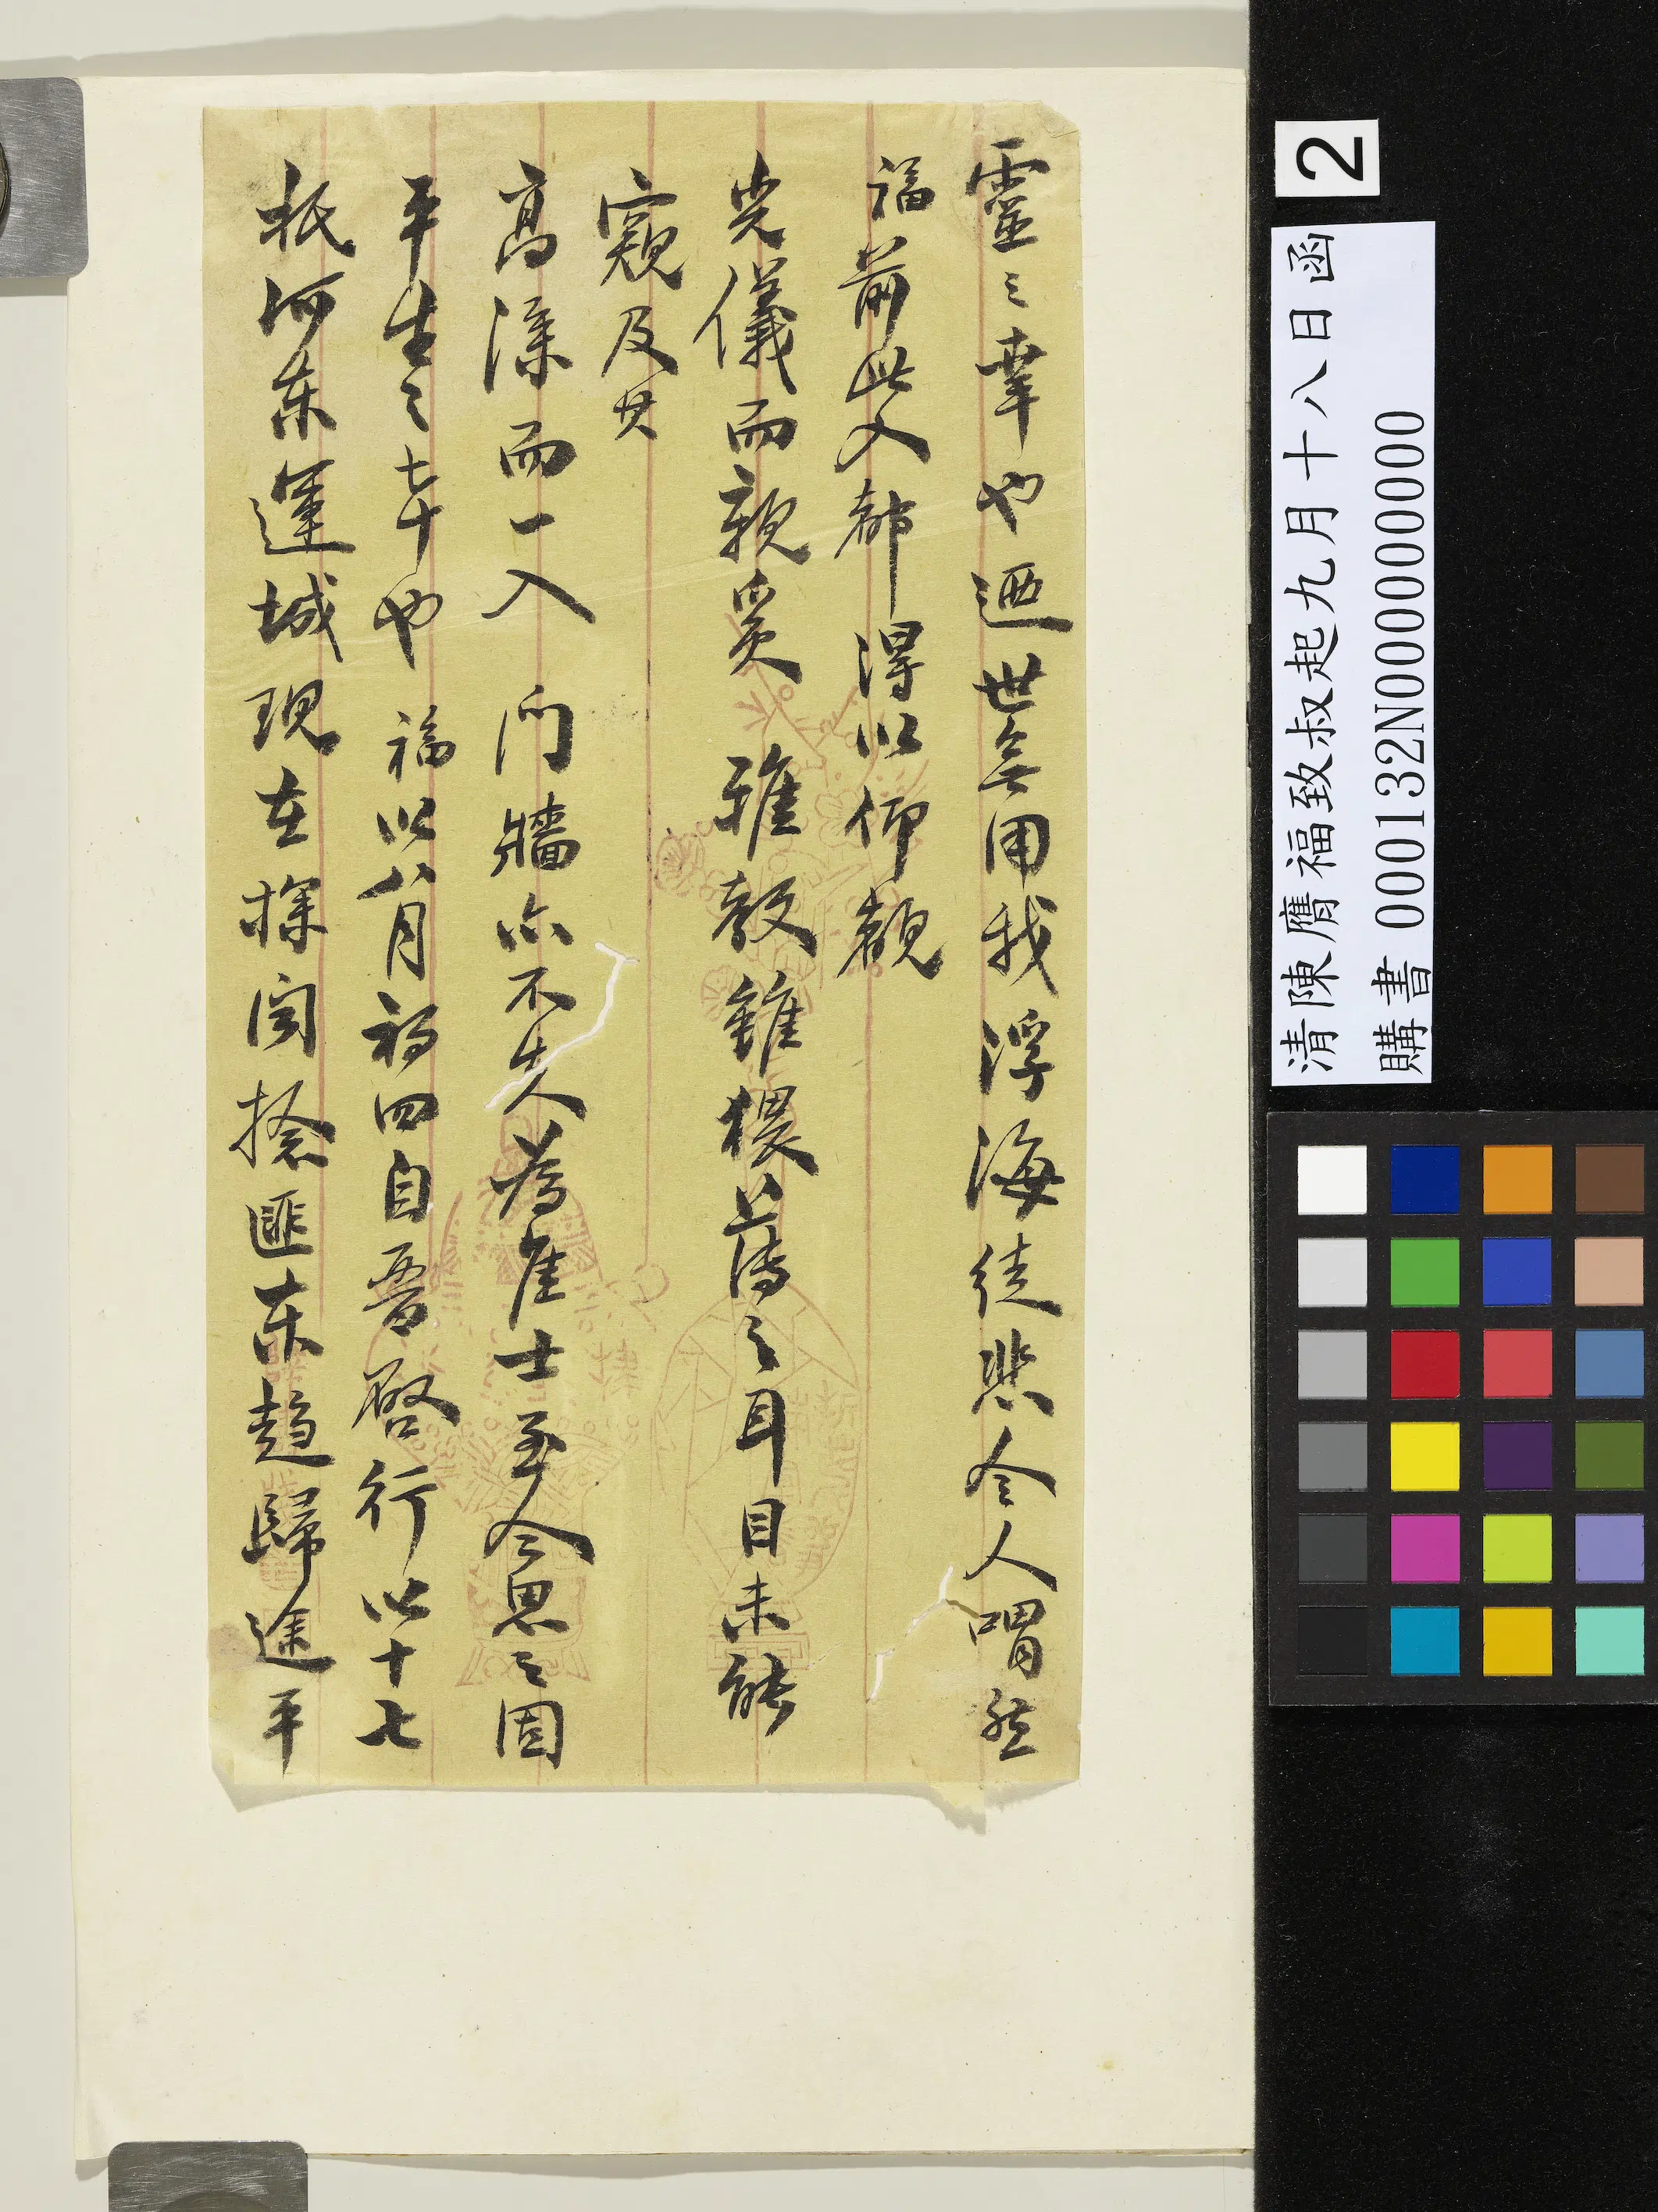 靈之幸也迺世無用我浮海徒悲令人喟然
福前此入都得以仰觀
光儀而親炙 雅教雖猥薄之耳目未能
窺及其
高深而一入 門牆亦不失為佳士至今思之固
平生之幸也 福以八月初四自晉啓行以十七
抵河東運城現在探聞捻匪東趨歸途平
2
清陳膺福致叔起九月十八日函
購書 000132N000000000